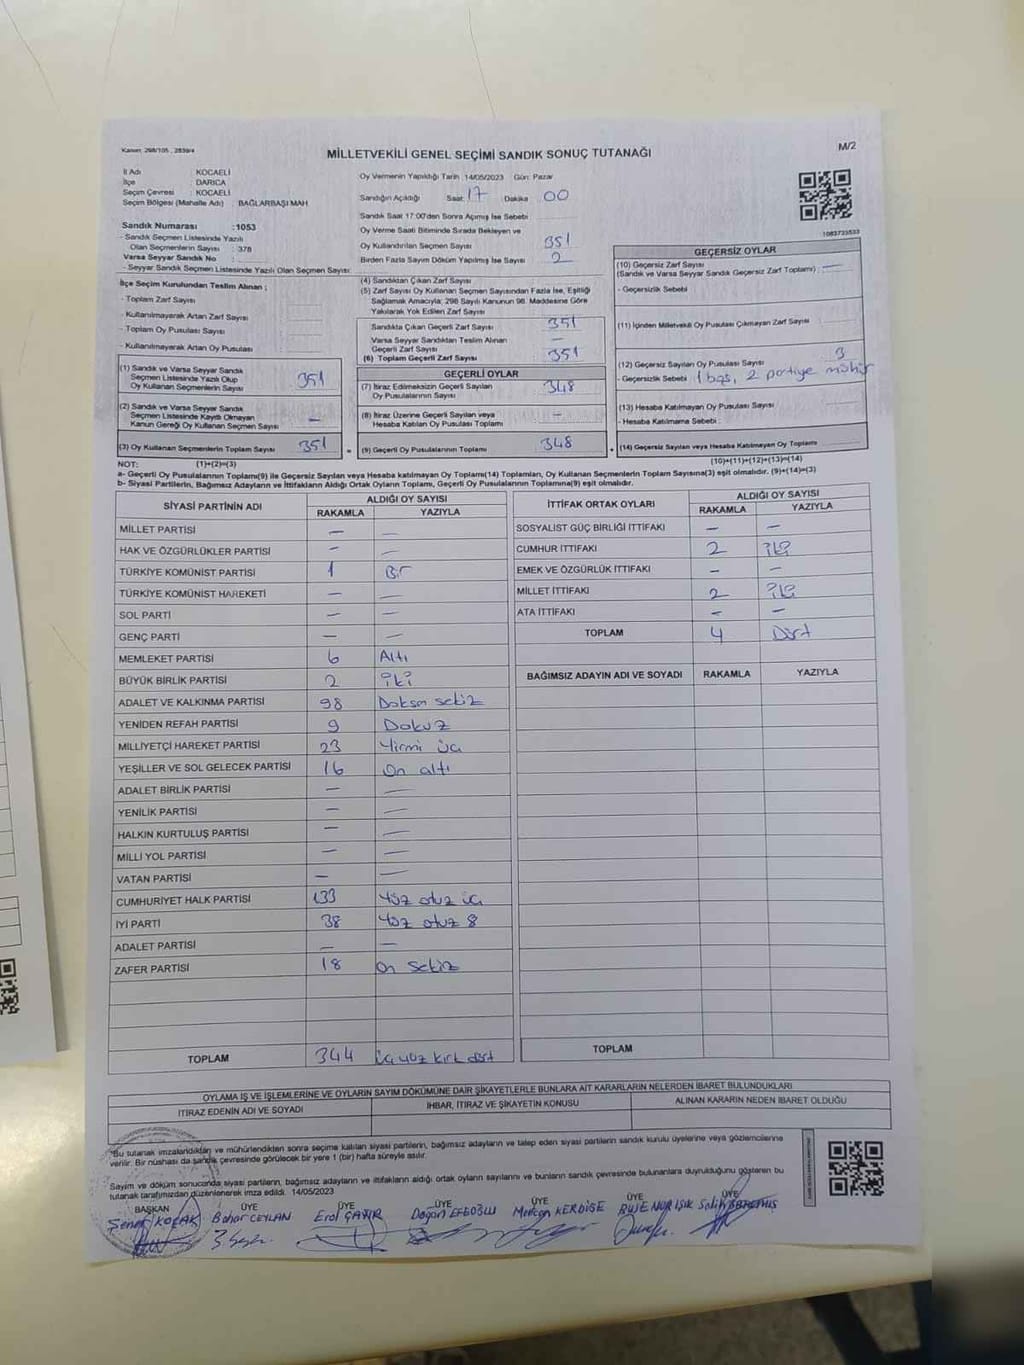 Kanun: 298/105 , 2839/4
MİLLETVEKİLİ GENEL SEÇİMİ SANDIK SONUÇ TUTANAĞI
M/2
İl Adı : KOCAELİ
İlçe : DARICA
Seçim Çevresi : KOCAELİ
Seçim Bölgesi (Mahalle Adı) : BAĞLARBAŞI MAH
Sandık Numarası : 1053
- Sandık Seçmen Listesinde Yazılı
Olan Seçmenlerin Sayısı : 378
Varsa Seyyar Sandık No :
- Seyyar Sandık Seçmen Listesinde Yazılı Olan Seçmen Sayısı
Oy Vermenin Yapıldığı Tarih : 14/05/2023 Gün: Pazar
Sandığın Açıldığı Saat: 17 Dakika 00
Sandık Saat 17:00'den Sonra Açılmış İse Sebebi
Oy Verme Saati Bitiminde Sırada Bekleyen ve
Oy Kullandırılan Seçmen Sayısı 351
Birden Fazla Sayım Döküm Yapılmış İse Sayısı 2
1083733533
İlçe Seçim Kurulundan Teslim Alınan :
- Toplam Zarf Sayısı
- Kullanılmayarak Artan Zarf Sayısı
- Toplam Oy Pusulası Sayısı
- Kullanılmayarak Artan Oy Pusulası
(1) Sandık ve Varsa Seyyar Sandık
Seçmen Listesinde Yazılı Olup
Oy Kullanan Seçmenlerin Sayısı 351
(2) Sandık ve Varsa Seyyar Sandık
Seçmen Listesinde Kayıtlı Olmayan
Kanun Gereği Oy Kullanan Seçmen Sayısı —
(3) Oy Kullanan Seçmenlerin Toplam Sayısı 351 =
(4) Sandıktan Çıkan Zarf Sayısı
(5) Zarf Sayısı Oy Kullanan Seçmen Sayısından Fazla İse, Eşitliği
Sağlamak Amacıyla; 298 Sayılı Kanunun 98. Maddesine Göre
Yakılarak Yok Edilen Zarf Sayısı
Sandıkta Çıkan Geçerli Zarf Sayısı 351
Varsa Seyyar Sandıktan Teslim Alınan
Geçerli Zarf Sayısı —
(6) Toplam Geçerli Zarf Sayısı 351
GEÇERLİ OYLAR
(7) İtiraz Edilmeksizin Geçerli Sayılan
Oy Pusulasının Sayısı 348
(8) İtiraz Üzerine Geçerli Sayılan veya
Hesaba Katılan Oy Pusulası Toplamı —
(9) Geçerli Oy Pusulalarının Toplamı 348 +
GEÇERSİZ OYLAR
(10) Geçersiz Zarf Sayısı
(Sandık ve Varsa Seyyar Sandık Geçersiz Zarf Toplamı) : —
- Geçersizlik Sebebi
(11) İçinden Milletvekili Oy Pusulası Çıkmayan Zarf Sayısı
(12) Geçersiz Sayılan Oy Pusulası Sayısı 3
- Geçersizlik Sebebi : 1 boş, 2 partiye mühür
(13) Hesaba Katılmayan Oy Pusulası Sayısı
- Hesaba Katılmama Sebebi :
(14) Geçersiz Sayılan veya Hesaba Katılmayan Oy Toplamı
NOT: (1)+(2)=(3) (10)+(11)+(12)+(13)=(14)
a- Geçerli Oy Pusulalarının Toplamı(9) ile Geçersiz Sayılan veya Hesaba katılmayan Oy Toplamı(14) Toplamları, Oy Kullanan Seçmenlerin Toplam Sayısına(3) eşit olmalıdır. (9)+(14)=(3)
b- Siyasi Partilerin, Bağımsız Adayların ve İttifakların Aldığı Ortak Oyların Toplamı, Geçerli Oy Pusulalarının Toplamına(9) eşit olmalıdır.
SİYASİ PARTİNİN ADI ALDIĞI OY SAYISI
RAKAMLA YAZIYLA
MİLLET PARTİSİ — —
HAK VE ÖZGÜRLÜKLER PARTİSİ — —
TÜRKİYE KOMÜNİST PARTİSİ 1 Bir
TÜRKİYE KOMÜNİST HAREKETİ — —
SOL PARTİ — —
GENÇ PARTİ — —
MEMLEKET PARTİSİ 6 Altı
BÜYÜK BİRLİK PARTİSİ 2 iki
ADALET VE KALKINMA PARTİSİ 98 Doksan sekiz
YENİDEN REFAH PARTİSİ 9 Dokuz
MİLLİYETÇİ HAREKET PARTİSİ 23 Yirmi üç
YEŞİLLER VE SOL GELECEK PARTİSİ 16 On altı
ADALET BİRLİK PARTİSİ — —
YENİLİK PARTİSİ — —
HALKIN KURTULUŞ PARTİSİ — —
MİLLİ YOL PARTİSİ — —
VATAN PARTİSİ — —
CUMHURİYET HALK PARTİSİ 133 Yüz otuz üç
İYİ PARTİ 38 Yüz otuz 8
ADALET PARTİSİ — —
ZAFER PARTİSİ 18 On sekiz
TOPLAM 344 üç yüz kırk dört
İTTİFAK ORTAK OYLARI ALDIĞI OY SAYISI
RAKAMLA YAZIYLA
SOSYALİST GÜÇ BİRLİĞİ İTTİFAKI — —
CUMHUR İTTİFAKI 2 iki
EMEK VE ÖZGÜRLÜK İTTİFAKI — —
MİLLET İTTİFAKI 2 iki
ATA İTTİFAKI — —
TOPLAM 4 Dört
BAĞIMSIZ ADAYIN ADI VE SOYADI RAKAMLA YAZIYLA
TOPLAM
OYLAMA İŞ VE İŞLEMLERİNE VE OYLARIN SAYIM DÖKÜMÜNE DAİR ŞİKAYETLERLE BUNLARA AİT KARARLARIN NELERDEN İBARET BULUNDUKLARI
İTİRAZ EDENİN ADI VE SOYADI İHBAR, İTİRAZ VE ŞİKAYETİN KONUSU ALINAN KARARIN NEDEN İBARET OLDUĞU
*Bu tutanak imzalandıktan ve mühürlendikten sonra seçime katılan siyasi partilerin, bağımsız adayların ve talep eden siyasi partilerin sandık kurulu üyelerine veya gözlemcilerine
verilir. Bir nüshası da sandık çevresinde görülecek bir yere 1 (bir) hafta süreyle asılır.
Sayım ve döküm sonucunda siyasi partilerin, bağımsız adayların ve ittifakların aldığı ortak oyların sayılarını ve bunların sandık çevresinde bulunanlara duyrulduğunu gösteren bu
tutanak tarafımızdan düzenlenerek imza edildi. 14/05/2023
BAŞKAN ÜYE ÜYE ÜYE ÜYE ÜYE ÜYE
Şener KOÇAK Bahar CEYLAN Erol ÇAKIR Doğan EFEOĞLU KERDİGE NUR IŞIK Salih